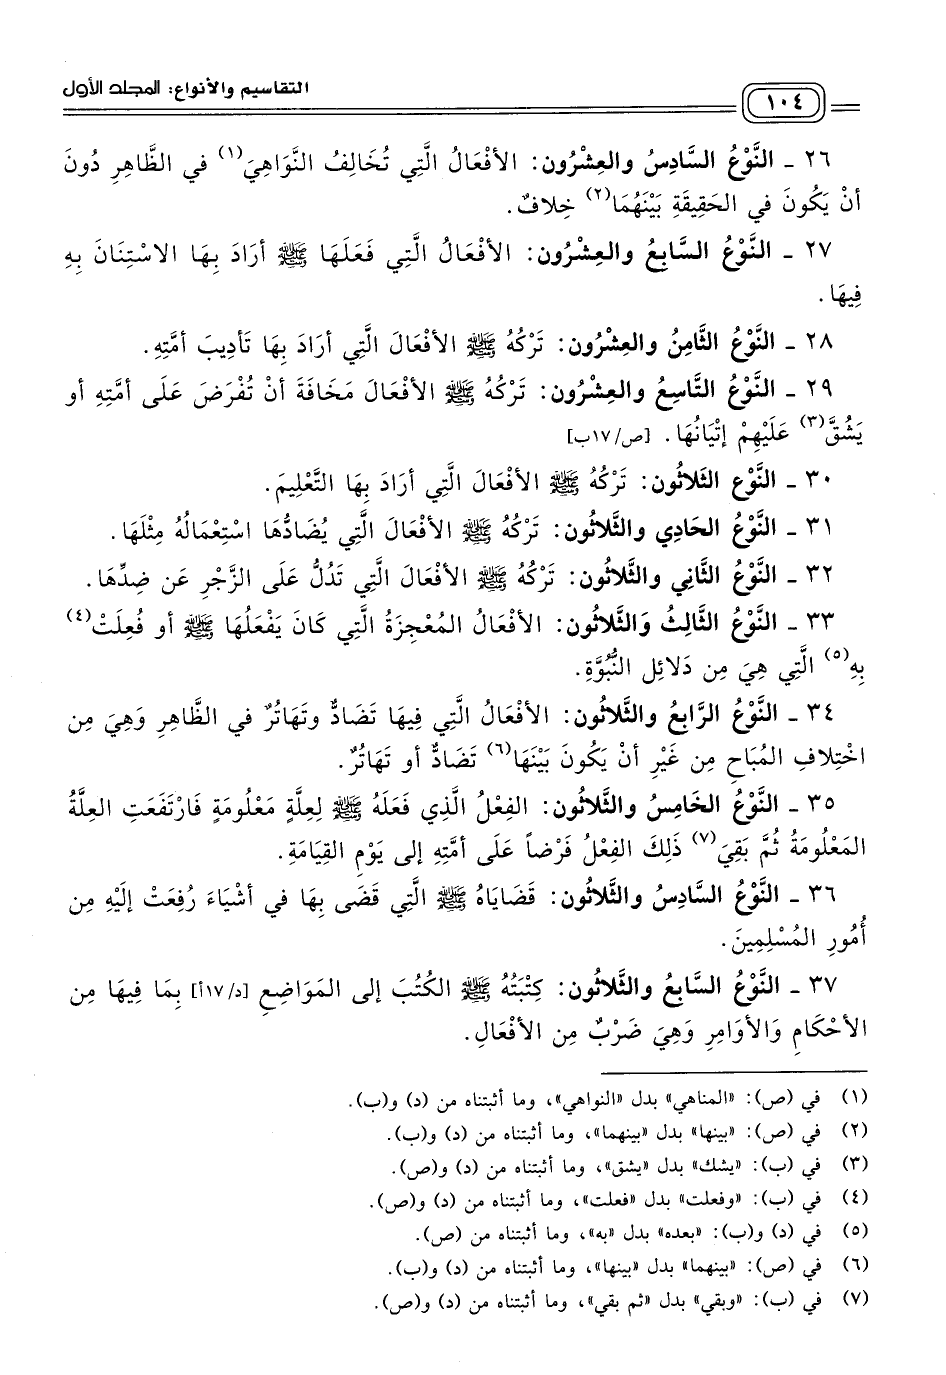 التقاسيم والأنواع: المجلد الأول
١٠٤
٢٦ ـ النَّوْعُ السَّادِسُ والعِشْرُون: الأفْعَالُ الَّتِي تُخَالِفُ النَّوَاهِيَ(١) في الظَّاهِرِ دُونَ
أنْ يَكُونَ في الحَقِيقَةِ بَيْنَهُمَا(٢) خِلافٌ.
٢٧ ـ النَّوْعُ السَّابعُ والعِشْرُون: الأفْعَالُ الَّتِي فَعَلَهَا ﷺ أرَادَ بِهَا الاسْتِنَانَ بِهِ
فِيهَا.
٢٨ ـ النَّوْعُ الثَّامنُ والعِشْرُون: تَرْكُهُ ﷺ الأفْعَالَ الَّتِي أرَادَ بِهَا تَأدِيبَ أمَّتِهِ.
٢٩ ـ النَّوْعُ التَّاسِعُ والعِشْرُون: تَرْكُهُ ﷺ الأفْعَالَ مَخَافَةَ أنْ تُفْرَضَ عَلَى أمَّتِهِ أو
يَشُقَّ(٣) عَلَيْهِمْ إتْيَانُهَا. [ص/١٧ب]
٣٠ ـ النَّوْع الثَلاثُون: تَرْكُهُ ﷺ الأفْعَالَ الَّتِي أرَادَ بِهَا التَّعْلِيمَ.
٣١ ـ النَّوْعُ الحَادِي والثَّلاثُون: تَرْكُهُ ﷺ الأفْعَالَ الَّتِي يُضَادُّهَا اسْتِعْمَالُهُ مِثْلَهَا.
٣٢ ـ النَّوْعُ الثَّانِي والثَّلاثُون: تَرْكُهُ ﷺ الأفْعَالَ الَّتِي تَدُلُّ عَلَى الزَّجْرِ عَن ضِدِّهَا.
٣٣ ـ النَّوْعُ الثَّالِث وَالثَّلاثُون: الأفْعَالُ المُعْجِزَةُ الَّتِي كَانَ يَفْعَلُهَا ﷺ أو فُعِلَتْ(٤)
بِهِ(٥) الَّتِي هِيَ مِن دَلائِل النُّبُوَّةِ.
٣٤ ـ النَّوْعُ الرَّابعُ والثَّلاثُون: الأفْعَالُ الَّتِي فِيهَا تَضَادٌّ وتَهَاتُرٌ في الظَّاهِرِ وَهِيَ مِن
اخْتِلافِ المُبَاحِ مِن غَيْرِ أنْ يَكُونَ بَيْنَهَا(٦) تَضَادٌّ أو تَهَاتُرٌ.
٣٥ ـ النَّوْعُ الخَامِسُ والثَّلاثُون: الفِعْلُ الَّذِي فَعَلَهُ ﷺ لِعِلَّةٍ مَعْلُومَةٍ فَارْتَفَعَتِ العِلَّةُ
المَعْلُومَةُ ثُمَّ بَقِيَ(٧) ذَلِكَ الفِعْلُ فَرْضاً عَلَى أمَّتِهِ إلى يَوْمِ القِيَامَةِ.
٣٦ ـ النَّوْعُ السَّادِسُ والثَّلاثُون: قَضَايَاهُ ﷺ الَّتِي قَضَى بِهَا في أشْيَاءَ رُفِعَتْ إلَيْهِ مِن
أُمُورِ المُسْلِمِينَ.
٣٧ ـ النَّوْعُ السَّابعُ والثَّلاثُون: كِتْبَتُهُ ﷺ الكُتُبَ إلى المَوَاضِعِ [د/١٧أ] بِمَا فِيهَا مِن
الأحْكَامِ وَالأوَامِرِ وَهِيَ ضَرْبٌ مِن الأفْعَالِ.
(١) في (ص): «المناهي» بدل «النواهي»، وما أثبتناه من (د) و(ب).
(٢) في (ص): «بينها» بدل «بينهما»، وما أثبتناه من (د) و(ب).
(٣) في (ب): «يشك» بدل «يشق»، وما أثبتناه من (د) و(ص).
(٤) في (ب): «وفعلت» بدل «فعلت»، وما أثبتناه من (د) و(ص).
(٥) في (د) و(ب): «بعده» بدل «به»، وما أثبتناه من (ص).
(٦) في (ص): «بينهما» بدل «بينها»، وما أثبتناه من (د) و(ب).
(٧) في (ب): «وبقي» بدل «ثم بقي»، وما أثبتناه من (د) و(ص).